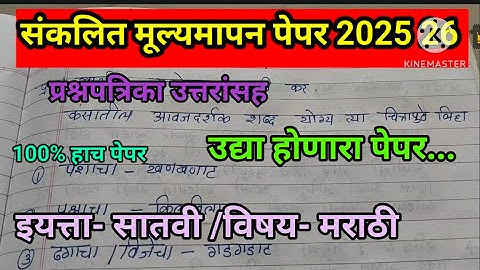 संकलित मूल्यमापन पेपर 2025 26
KINEMASTER
प्रश्नपत्रिका उत्तरांसह
कर.
कंसातील आवाजदर्शक शब्द योग्य त्या चित्रापुढे लिहा
100% हाच पेपर
उद्या होणारा पेपर...
① पैशाचा - खणखणाट
इयत्ता- सातवी /विषय- मराठी
③ ढगाचा / विजेचा - गडगडाट